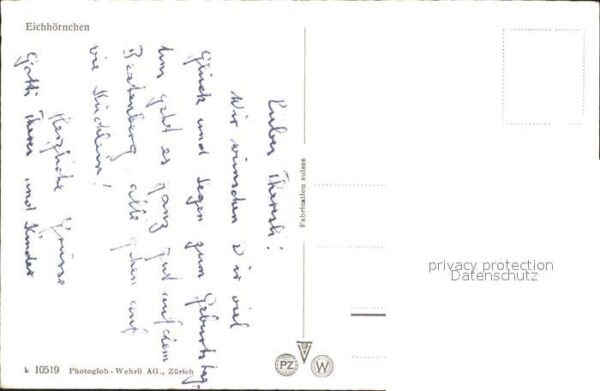 Eichhörnchen
Lieber Theresli!
Wir wünschen Dir viel
Glück und Segen zum Geburtstag.
Uns geht es ganz gut auf dem
Beatenberg, alle gehen auf
wie Küchlein!
Herzliche Grüsse
Götti Theres und Kinder
Fabrication suisse
privacy protection
Datenschutz
PZ
W
k 10519 Photoglob-Wehrli AG., Zürich